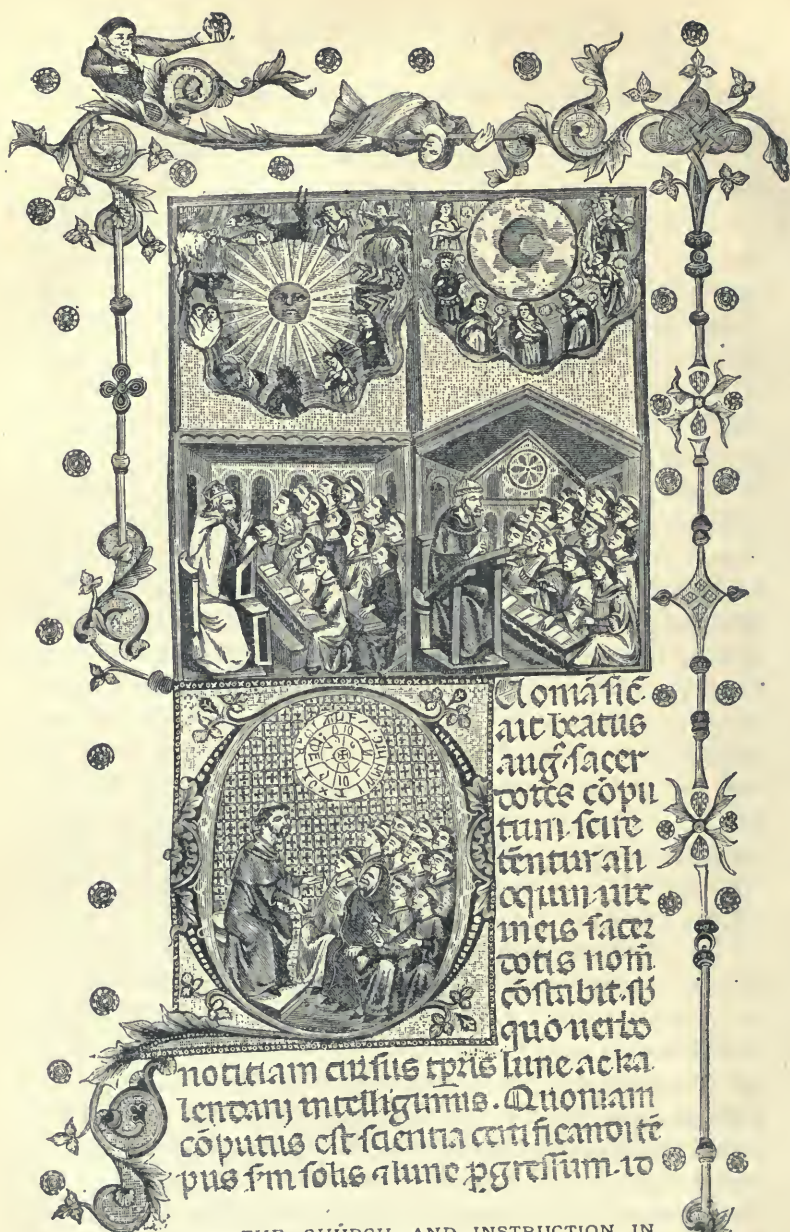 Uomā sic̄
ait beatus
aug᷒. sacer
dotes cōpu
tum scire
tēntur ali
oquin uix
in eis sacer
dotis nom̄
cōstabit. sb̄
quo uerbo
notitiam cursus tp̄ris lune ac ka
lendarij intelligimus. Quoniam
cōputus est scientia certificandi tē
pus sm̄ solis ⁊ lune ꝓgressum. io
THE CHURCH AND INSTRUCTION IN